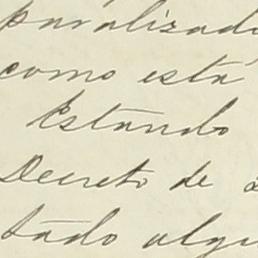 paralizado
como está
Estando
Decreto de 2
tado algu